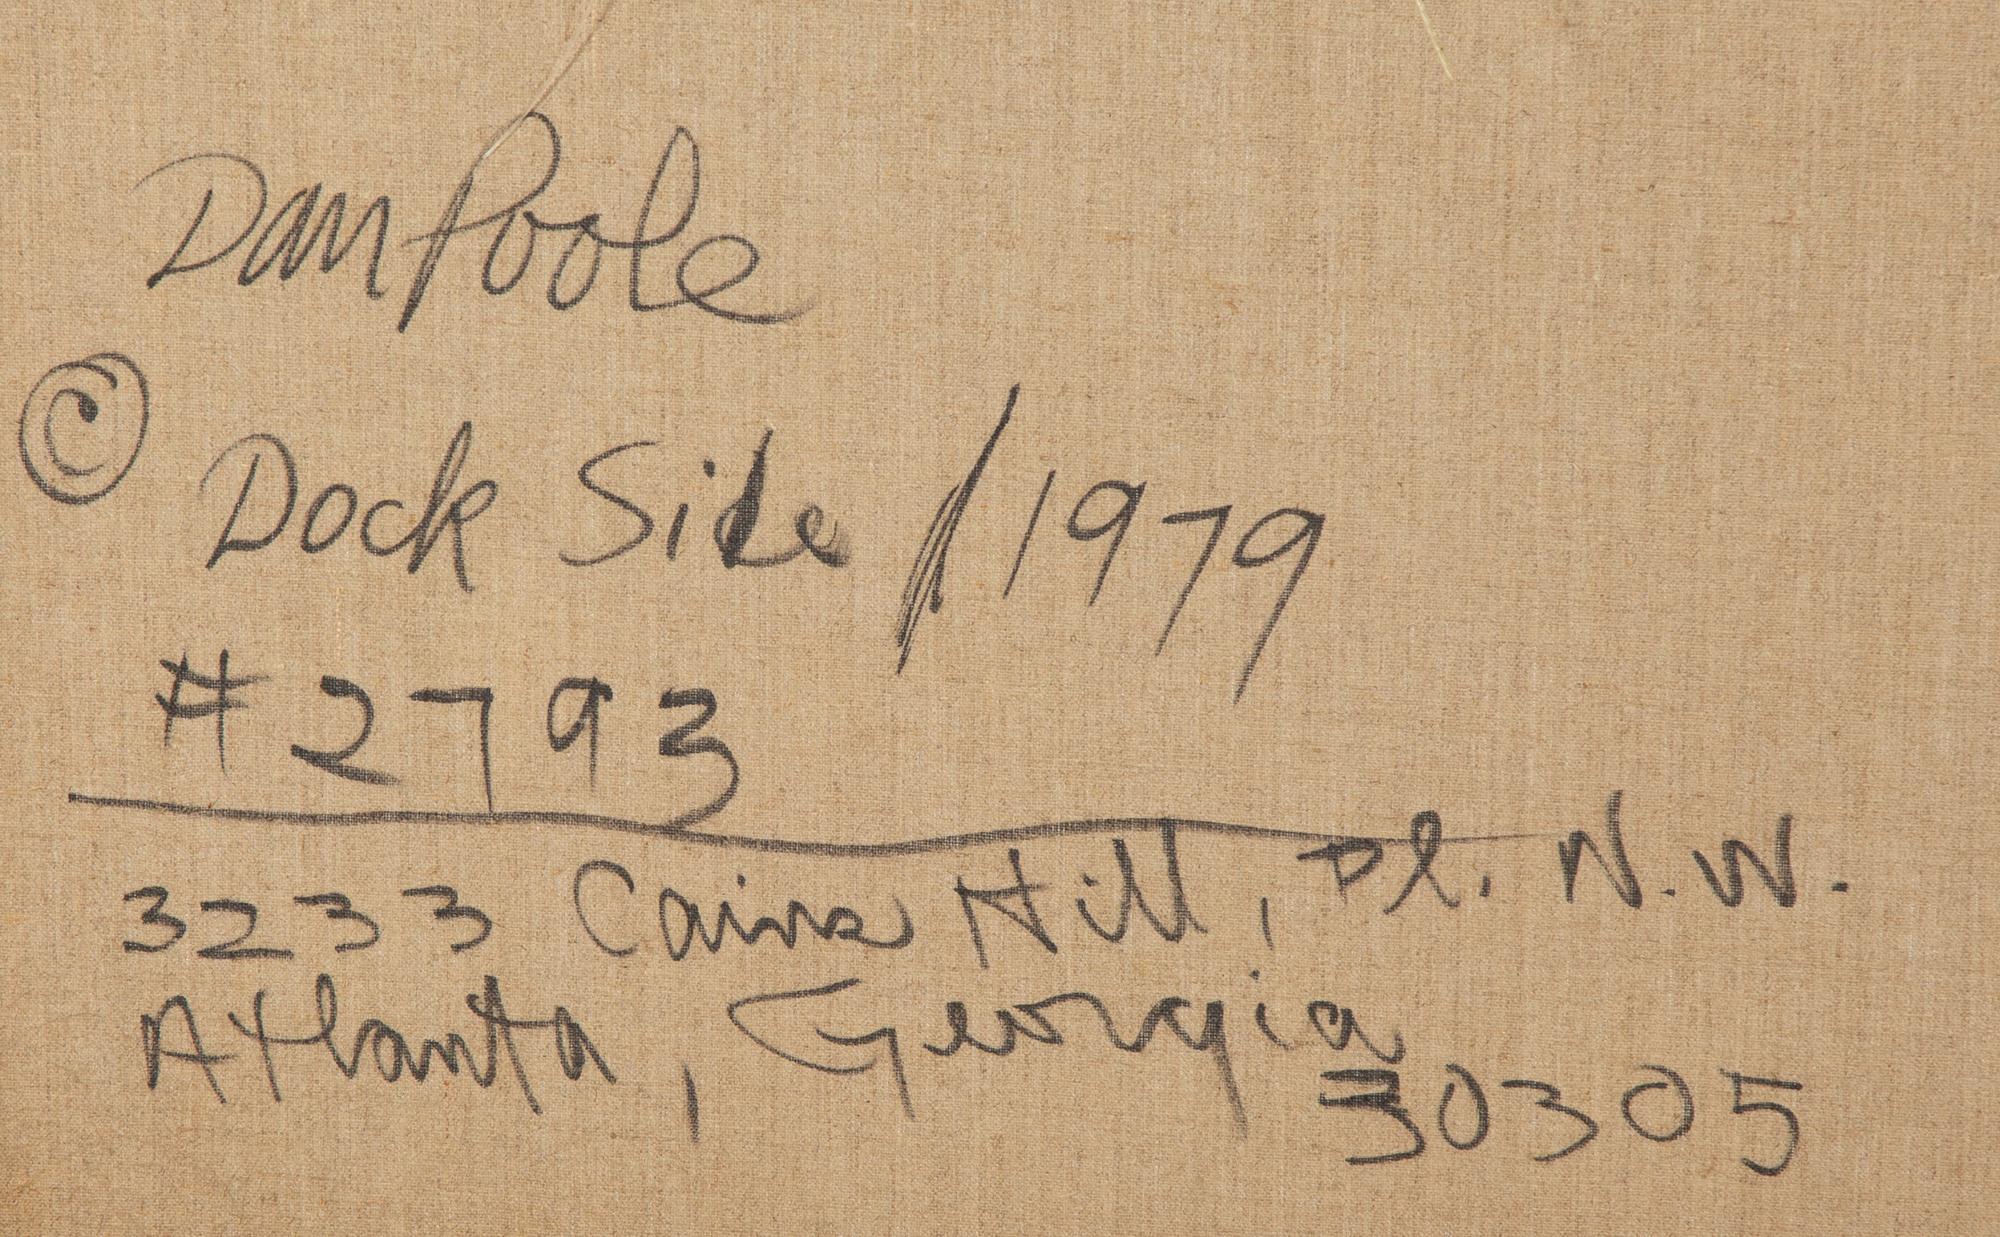 Dan Poole
© Dock Side / 1979
# 2793
3233 Cains Hill, Pl. N.W.
Atlanta, Georgia
30305